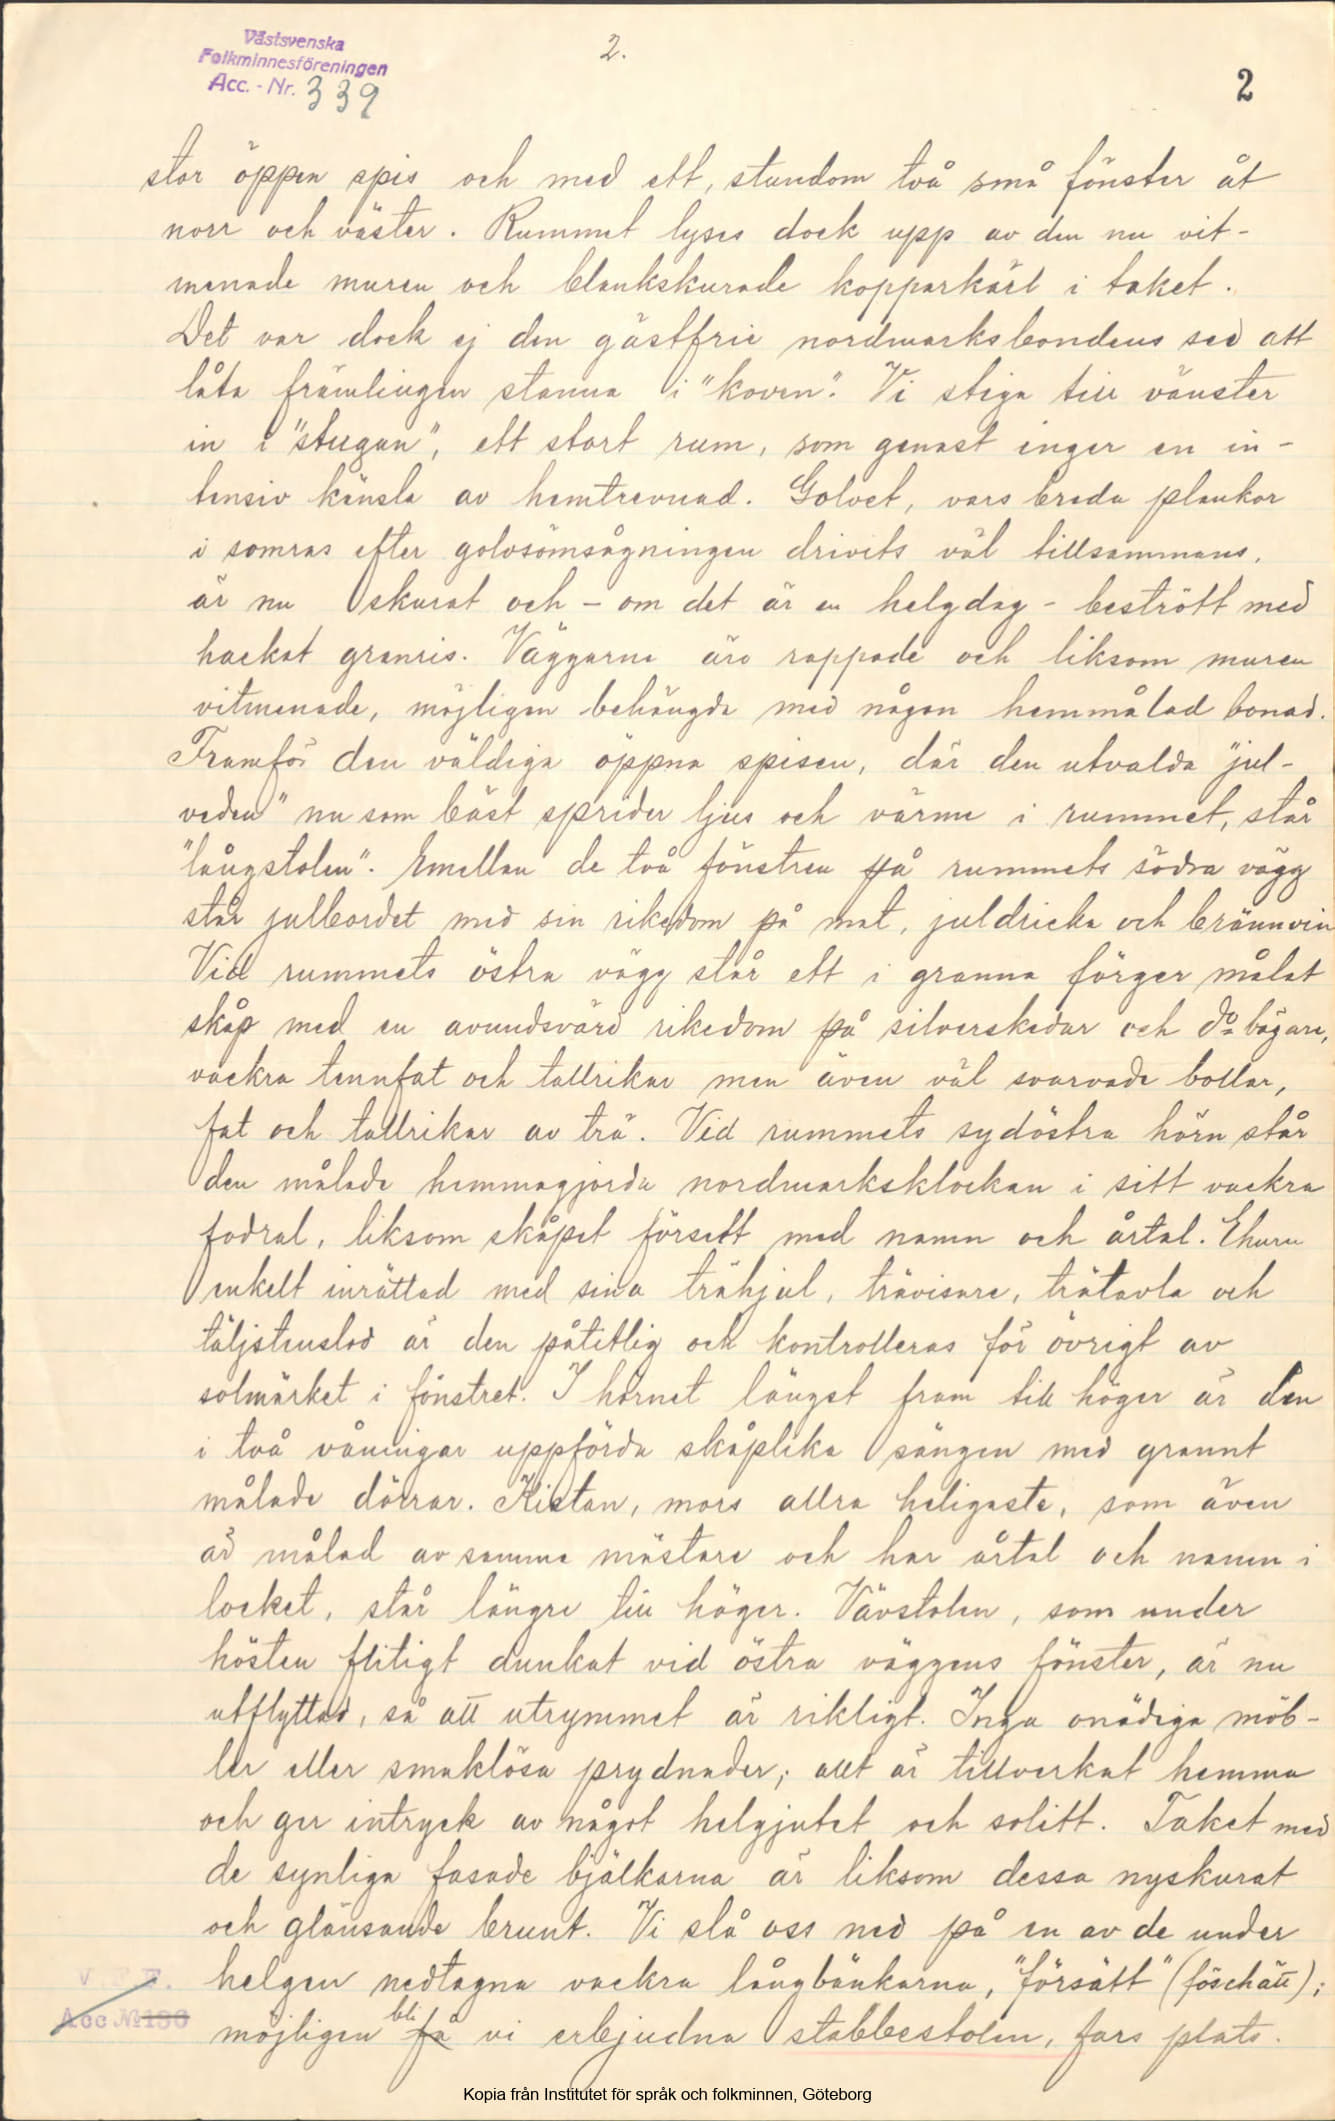 Västsvenska
Folkminnesföreningen
Acc. - Nr. 339
2.
2
stor öppen spis och med ett, stundom två små fönster åt
norr och väster. Rummet lyses dock upp av den nu vit-
menade muren och blankskurade kopparkärl i taket.
Det var dock ej den gästfrie nordmarksbondens sed att
låta främlingen stanna i "koven". Vi stiga till vänster
in i "stugan", ett stort rum, som genast inger en in-
tensiv känsla av hemtrevnad. Golvet, vars breda plankor
i somras efter golvsömsågningen drivits väl tillsammans,
är nu skurat och - om det är en helgdag - bestrött med
hackat granris. Väggarna äro rappade och liksom muren
vitmenade, möjligen behängda med någon hemmålad bonad.
Framför den väldiga öppna spisen, där den utvalda "jul-
veden" nu som bäst sprider ljus och värme i rummet, står
"långstolen". Emellan de två fönstren på rummets södra vägg
står julbordet med sin rikedom på mat, juldricka och brännvin
Vid rummets östra vägg står ett i granna färger målat
skåp med en avundsvärd rikedom på silverskedar och do bägare,
vackra tennfat och tallrikar men även väl svarvade bollar,
fat och tallrikar av trä. Vid rummets sydöstra hörn står
den målade hemmagjorda nordmarksklockan i sitt vackra
fodral, liksom skåpet försett med namn och årtal. Ehuru
enkelt inrättad med sina trähjul, trävisare, trätavla och
täljstenslod är den pålitlig och kontrolleras för övrigt av
solmärket i fönstret. I hörnet längst fram till höger är den
i två våningar uppförda skåplika sängen med grannt
målade dörrar. Kistan, mors allra heligaste, som även
är målad av samma mästare och har årtal och namn i
locket, står längre till höger. Vävstolen, som under
hösten flitigt dunkat vid östra väggens fönster, är nu
utflyttad, så att utrymmet är rikligt. Inga onödiga möb-
ler eller smaklösa prydnader; allt är tillverkat hemma
och ger intryck av något helgjutet och solitt. Taket med
de synliga fasade bjälkarna är liksom dessa nyskurat
och glänsande brunt. Vi slå oss ned på en av de under
helgen nedtagna vackra långbänkarna, "försätt" (föschätt);
möjligen bli få vi erbjudna stabbestolen, fars plats.
V. F. F.
Acc № 186
Kopia från Institutet för språk och folkminnen, Göteborg